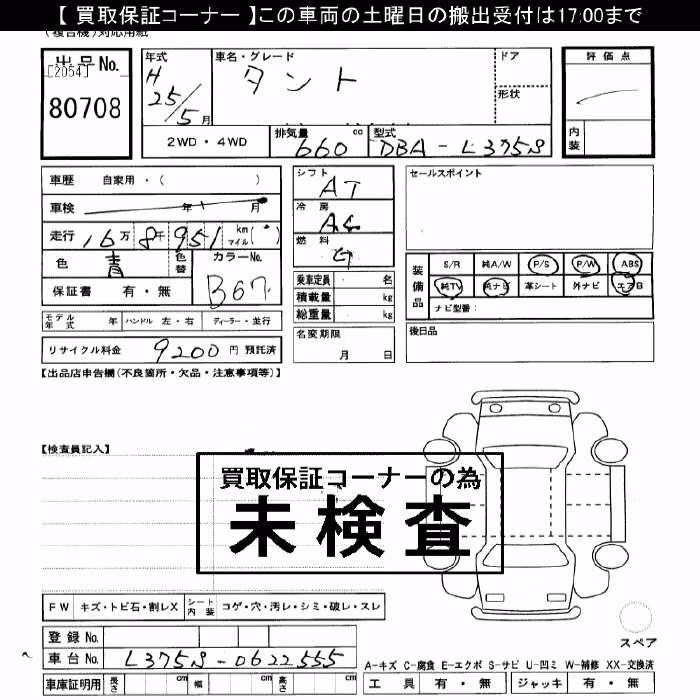 【 買取保証コーナー 】この車両の土曜日の搬出受付は17:00まで
(複合機)対応用紙
出品No.
[2054]
80708
年式
H 25/5月
車名・グレード
タント
ドア
形状
評価点
内装
2WD・4WD
排気量 660 cc
型式 DBA-L375S
車歴 自家用・( )
車検 年 月
走行 16万8千951 km マイル
色 青
色替
カラーNo.
B67
保証書 有・無
シフト
AT
冷房
AC
燃料
ガ
乗車定員 名
積載量 kg
総重量 kg
名変期限
月 日
セールスポイント
装備品
S/R 純A/W P/S P/W ABS
純TV 純ナビ 革シート 外ナビ エアB
ナビ型番:
後日品
モデル年式 年 ハンドル 左・右 ディーラー・並行
リサイクル料金 9200 円 預託済
【出品店申告欄(不良箇所・欠品・注意事項等)】
【検査員記入】
買取保証コーナーの為
未検査
FW キズ・トビ石・割レX シート内装 コゲ・穴・汚レ・シミ・破レ・スレ
スペア
登録No.
車台No. L375S-0622555
A-キズ C-腐食 E-エクボ S-サビ U-凹ミ W-補修 XX-交換済
車庫証明用 長さ cm 幅 cm 高さ cm
工具 有・無 ジャッキ 有・無